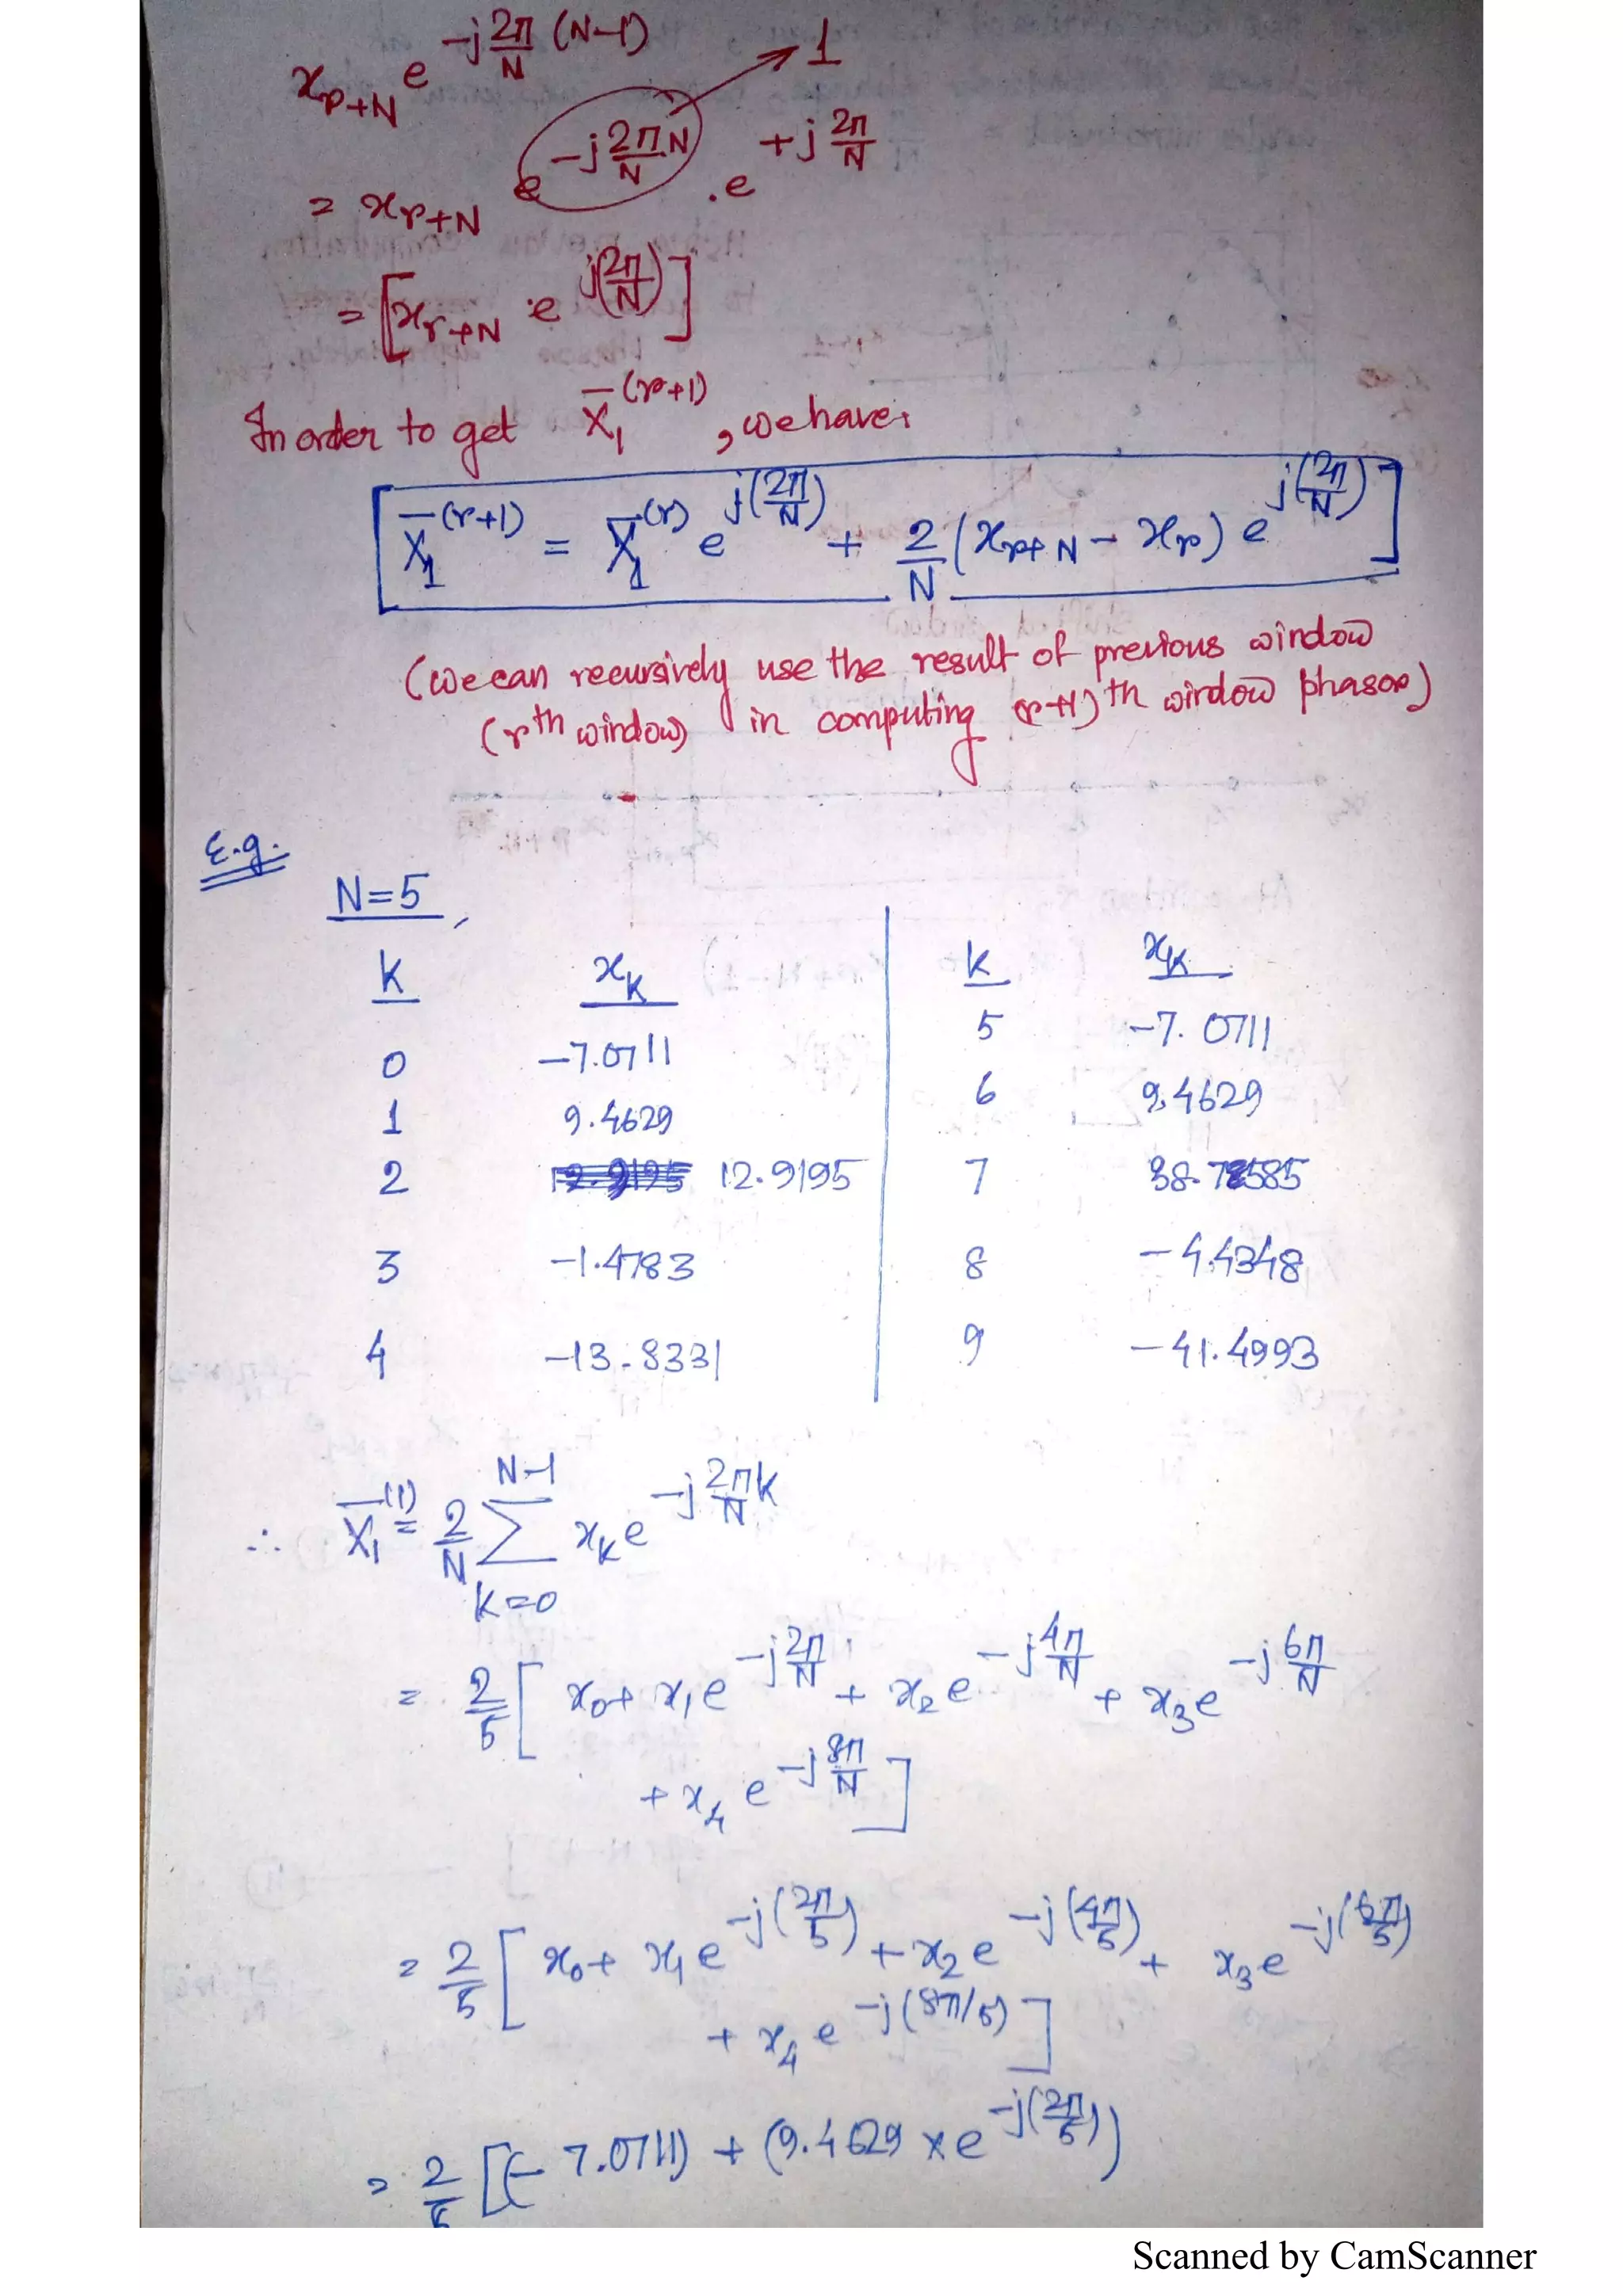 x_{r+N} e^{-j\frac{2π}{N}(N-1)}
= x_{r+N} e^{-j\frac{2π}{N}N} . e^{+j\frac{2π}{N}} → 1
= [x_{r+N} e^{j(\frac{2π}{N})}]
In order to get \overline{X}_1^{(r+1)}, we have,
[\overline{X}_1^{(r+1)} = \overline{X}_1^{(r)} e^{j(\frac{2π}{N})} + \frac{2}{N}(x_{r+N} - x_r) e^{j(\frac{2π}{N})}]
(we can recursively use the result of previous window
(rth window) in computing (r+1)th window phasor)
E.g.
N=5,
k x_k k x_k
0 -7.0711 5 -7.0711
1 9.4629 6 9.4629
2 12.9195 7
3 -1.4783 8 -4.4348
4 -13.8331 9 -41.4993
∴ \overline{X}_1^{(1)} = \frac{2}{N} \sum_{k=0}^{N-1} x_k e^{-j\frac{2πk}{N}}
= \frac{2}{5}[x_0 + x_1 e^{-j\frac{2π}{N}} + x_2 e^{-j\frac{4π}{N}} + x_3 e^{-j\frac{6π}{N}}
+ x_4 e^{-j\frac{8π}{N}}]
= \frac{2}{5}[x_0 + x_1 e^{-j(\frac{2π}{5})} + x_2 e^{-j(\frac{4π}{5})} + x_3 e^{-j(\frac{6π}{5})}
+ x_4 e^{-j(8π/5)}]
= \frac{2}{5}[(-7.0711) + (9.4629 × e^{-j(\frac{2π}{5})})
Scanned by CamScanner